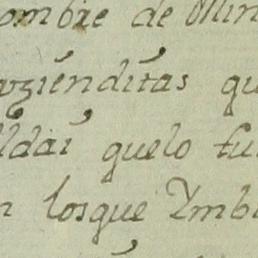 ombre de Min
aziéndítas qu
ldaí quelo fu
n losque Ymb